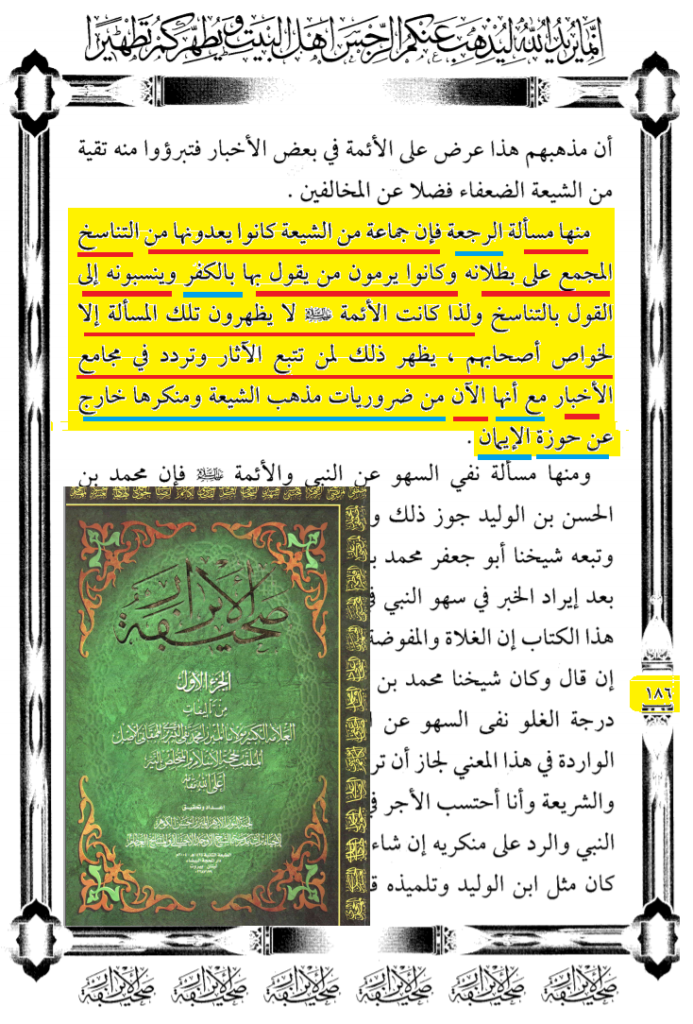 إنما يريد الله ليذهب عنكم الرجس أهل البيت ويطهركم تطهيرا
أن مذهبهم هذا عرض على الأئمة في بعض الأخبار فتبرؤوا منه تقية
من الشيعة الضعفاء فضلا عن المخالفين .
منها مسألة الرجعة فإن جماعة من الشيعة كانوا يعدونها من التناسخ
المجمع على بطلانه وكانوا يرمون من يقول بها بالكفر وينسبونه إلى
القول بالتناسخ ولذا كانت الأئمة عليهم السلام لا يظهرون تلك المسألة إلا
لخواص أصحابهم ، يظهر ذلك لمن تتبع الآثار وتردد في مجامع
الأخبار مع أنها الآن من ضروريات مذهب الشيعة ومنكرها خارج
عن حوزة الإيمان .
ومنها مسألة نفي السهو عن النبي والأئمة عليهم السلام فإن محمد بن
الحسن بن الوليد جوز ذلك و
وتبعه شيخنا أبو جعفر محمد
بعد إيراد الخبر في سهو النبي
هذا الكتاب إن الغلاة والمفوضة
إن قال وكان شيخنا محمد بن
درجة الغلو نفى السهو عن
الواردة في هذا المعني لجاز أن
والشريعة وأنا أحتسب الأجر
النبي والرد على منكريه إن شاء
كان مثل ابن الوليد وتلميذه
١٨٦
صحيفة الأبرار
الجزء الأول
من تأليفات
صحيفة الأبرار صحيفة الأبرار صحيفة الأبرار صحيفة الأبرار صحيفة الأبرار صحيفة الأبرار